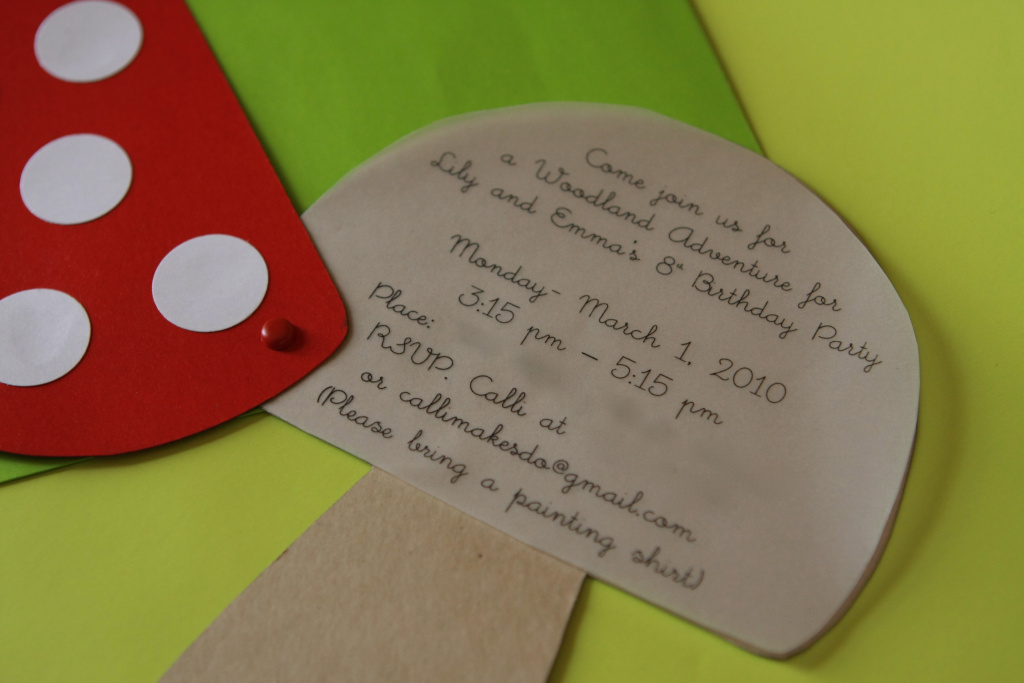 Come join us for
a Woodland Adventure for
Lily and Emma's 8th Birthday Party
Monday- March 1, 2010
3:15 pm - 5:15 pm
Place:
RSVP. Calli at
or callimakesdo@gmail.com
(Please bring a painting shirt)